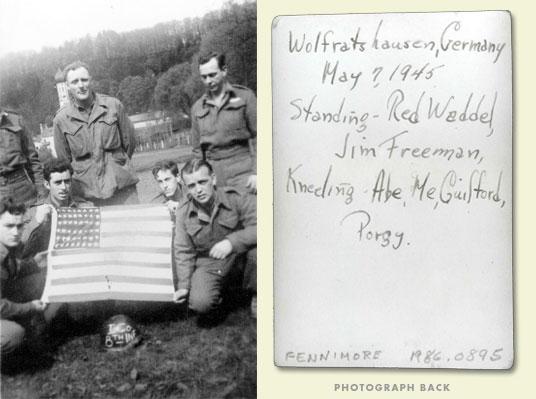 I Co.
8TH INF
Wolfratshausen, Germany
May 7, 1945
Standing - Red Waddel,
Jim Freeman,
Kneeling - Abe, Me, Guilford,
Porgy.
FENNIMORE 1986.0895
PHOTOGRAPH BACK